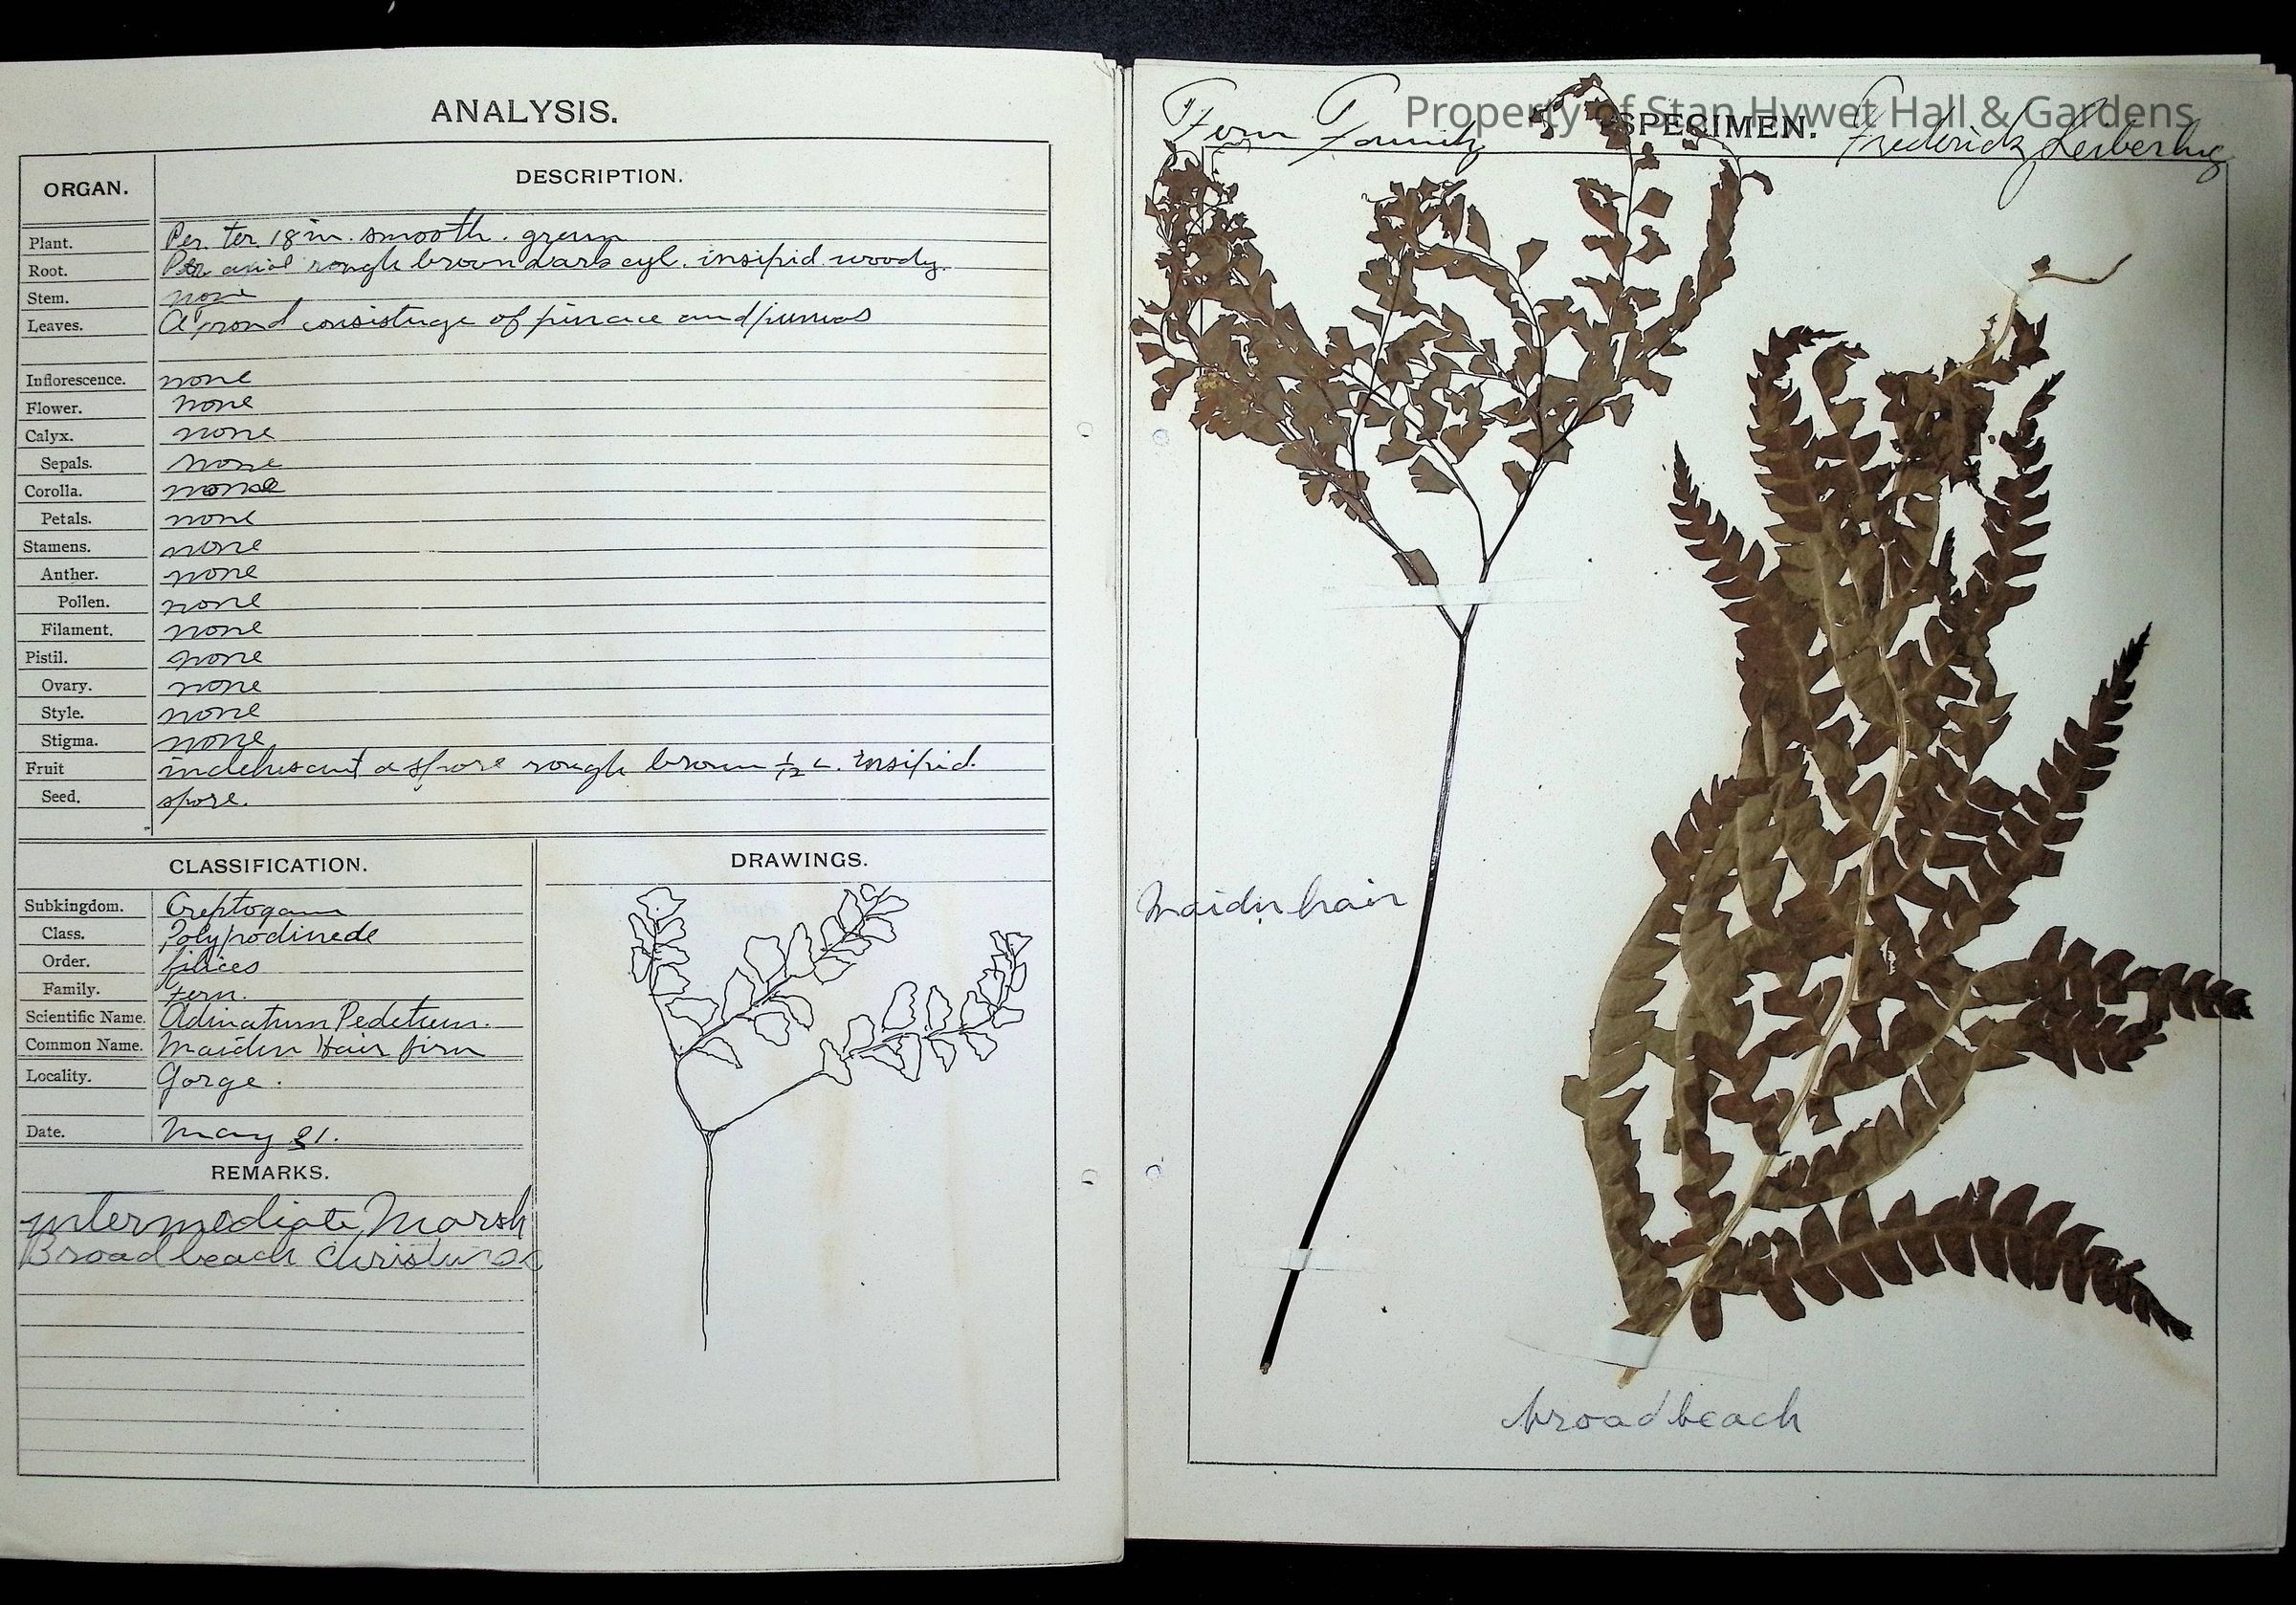 ANALYSIS.
ORGAN. DESCRIPTION.
Plant. Per. ter 18 in. smooth. green
Root. axial rough brown dark cyl. insipid woody.
Stem. none
Leaves. A frond consistinge of pinnace and pinnas
Inflorescence. none
Flower. none
Calyx. none
Sepals. none
Corolla. none
Petals. none
Stamens. none
Anther. none
Pollen. none
Filament. none
Pistil. none
Ovary. none
Style. none
Stigma. none
Fruit indehiscent a spore rough brown 1/12 L. insipid.
Seed. spore.
CLASSIFICATION.
Subkingdom. Creptogam
Class. Polypodinede
Order. filices
Family. fern.
Scientific Name. Adinatum Pedetum.
Common Name. Maiden Hair firn
Locality. Gorge.
Date. May 21.
REMARKS.
intermediate, Marsh
Broad beach Christmas
DRAWINGS.
Property of Stan Hywet Hall & Gardens
Fern Family SPECIMEN. Frederick Seiberling
Maiden hair
broad beach